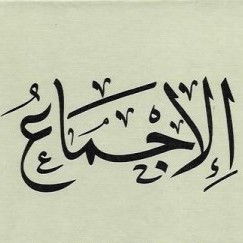 الإجماعُ